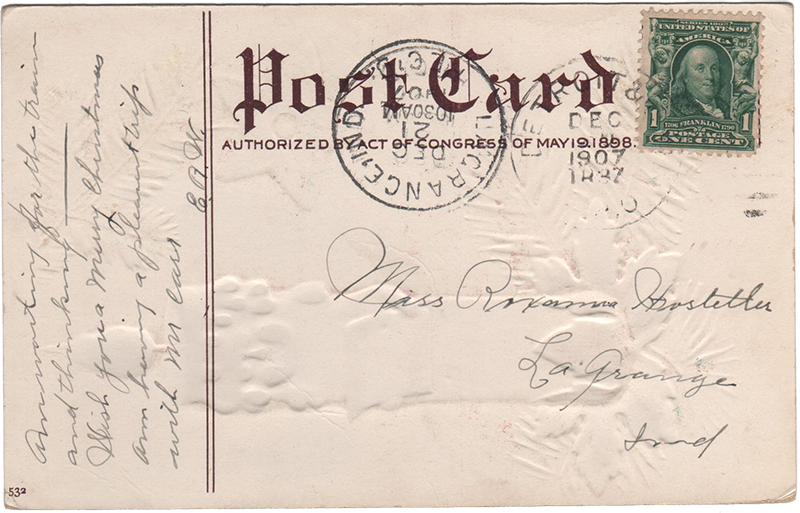 Post Card
AUTHORIZED BY ACT OF CONGRESS OF MAY 19, 1898.
SERIES 1902
UNITED STATES OF
AMERICA
1 1706 FRANKLIN 1790 1
POSTAGE
ONE CENT
LAGRANGE, IND.
DEC
21
10 30 AM
07
REC'D.
DETROIT
DEC
1907
Miss Roxanna Hostetler
La Grange
Ind
Am waiting for the train
and thinking
Wish you a Merry Christmas
am having a pleasant trip
with Mr Carl
E. R. W.
532